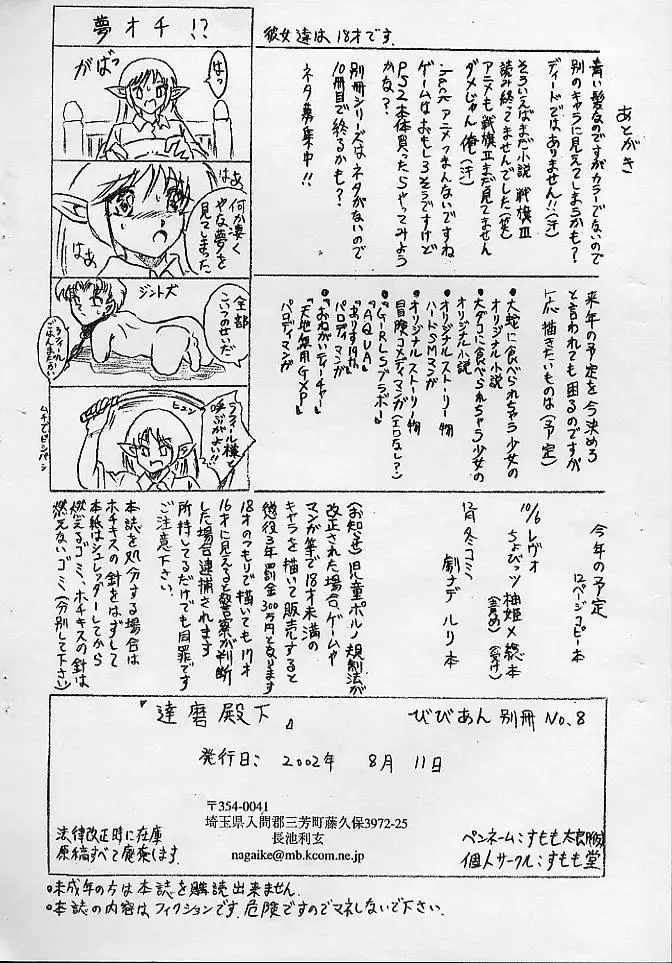 夢オチ!?
がばっ
はっ
はぁ
はぁ
何か凄く
やな夢を
見てしまった
ジント犬
全部
こいつのせいだ
ラフィール
ごはんまだかい
ラフィール様と
呼ぶがよい!!
ヒュン
ムチでビシバシ
彼女達は18才です。
あとがき
青い髪なのですがカラーでないので
別のキャラに見えてしまうかも?
ディードではありません!!(汗)
そういえばまだ小説 戦旗Ⅲ
読み終ってませんでした(笑)
アニメも戦旗Ⅱまだ見てません
ダメじゃん 俺(汗)
.hack アニメつまんないですね
ゲームはおもしろそうですけど
PS2本体買ったらやってみよう
かな?
別冊シリーズはネタがないので
10冊目で終るかも?
ネタ募集中!!
来年の予定を今決めろ
と言われても困るのですが
一応 描きたいものは(予定)
●大蛇に食べられちゃう少女の
オリジナル小説
●大ダコに食べられちゃう少女の
オリジナル小説
●オリジナルストーリー物
ハードSMマンガ
●オリジナルストーリー物
冒険コメディマンガ(エロなし?)
●『G・I・R・L・Sブラボー』
『AQUA』
『ありす19th』
パロディマンガ
●『おねがいティーチャー』
『天地無用GXP』
パロディマンガ
今年の予定
12ページコピー本
10/6 レヴォ
ちょびっツ 柚姫×総本
(責め) (受け)
12月 冬コミ
劇ナデ ルリ本
(お知らせ)児童ポルノ規制法が
改正された場合、ゲームや
マンガ等で18才未満の
キャラを描いて販売すると
懲役3年罰金300万円となります
18才のつもりで描いても17才
16才に見えると警察が判断
した場合逮捕されます
所持してるだけでも同罪です
ご注意下さい。
本誌を処分する場合は
ホチキスの針をはずして
本紙はシュレッダーしてから
燃えるゴミ、ホチキスの針は
燃えないゴミ(分別して下さい)
『達磨殿下』
びびあん 別冊 No.8
発行日: 2002年 8月 11日
〒354-0041
埼玉県入間郡三芳町藤久保3972-25
長池利玄
nagaike@mb.kcom.ne.jp
法律改正時に在庫
原稿すべて廃棄します。
ペンネーム:すもも太郎(仮)
個人サークル:すもも堂
○未成年の方は本誌を購読出来ません。
○本誌の内容はフィクションです。危険ですのでマネしないで下さい。